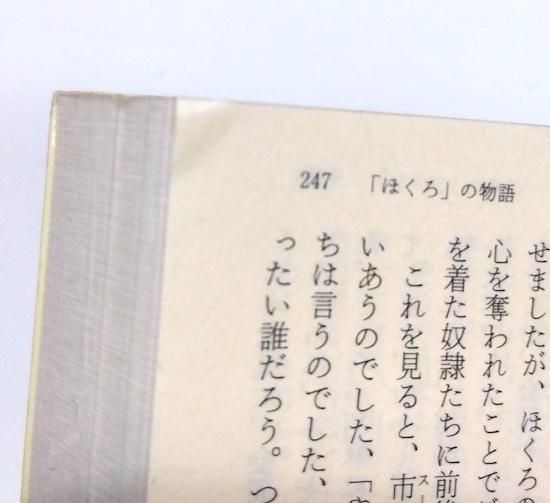 247 「ほくろ」の物語
せましたが、ほくろの
心を奪われたことで
を着た奴隷たちに前
これを見ると、市ス
いあうのでした、「
ちは言うのでした、
ったい誰だろう。つ